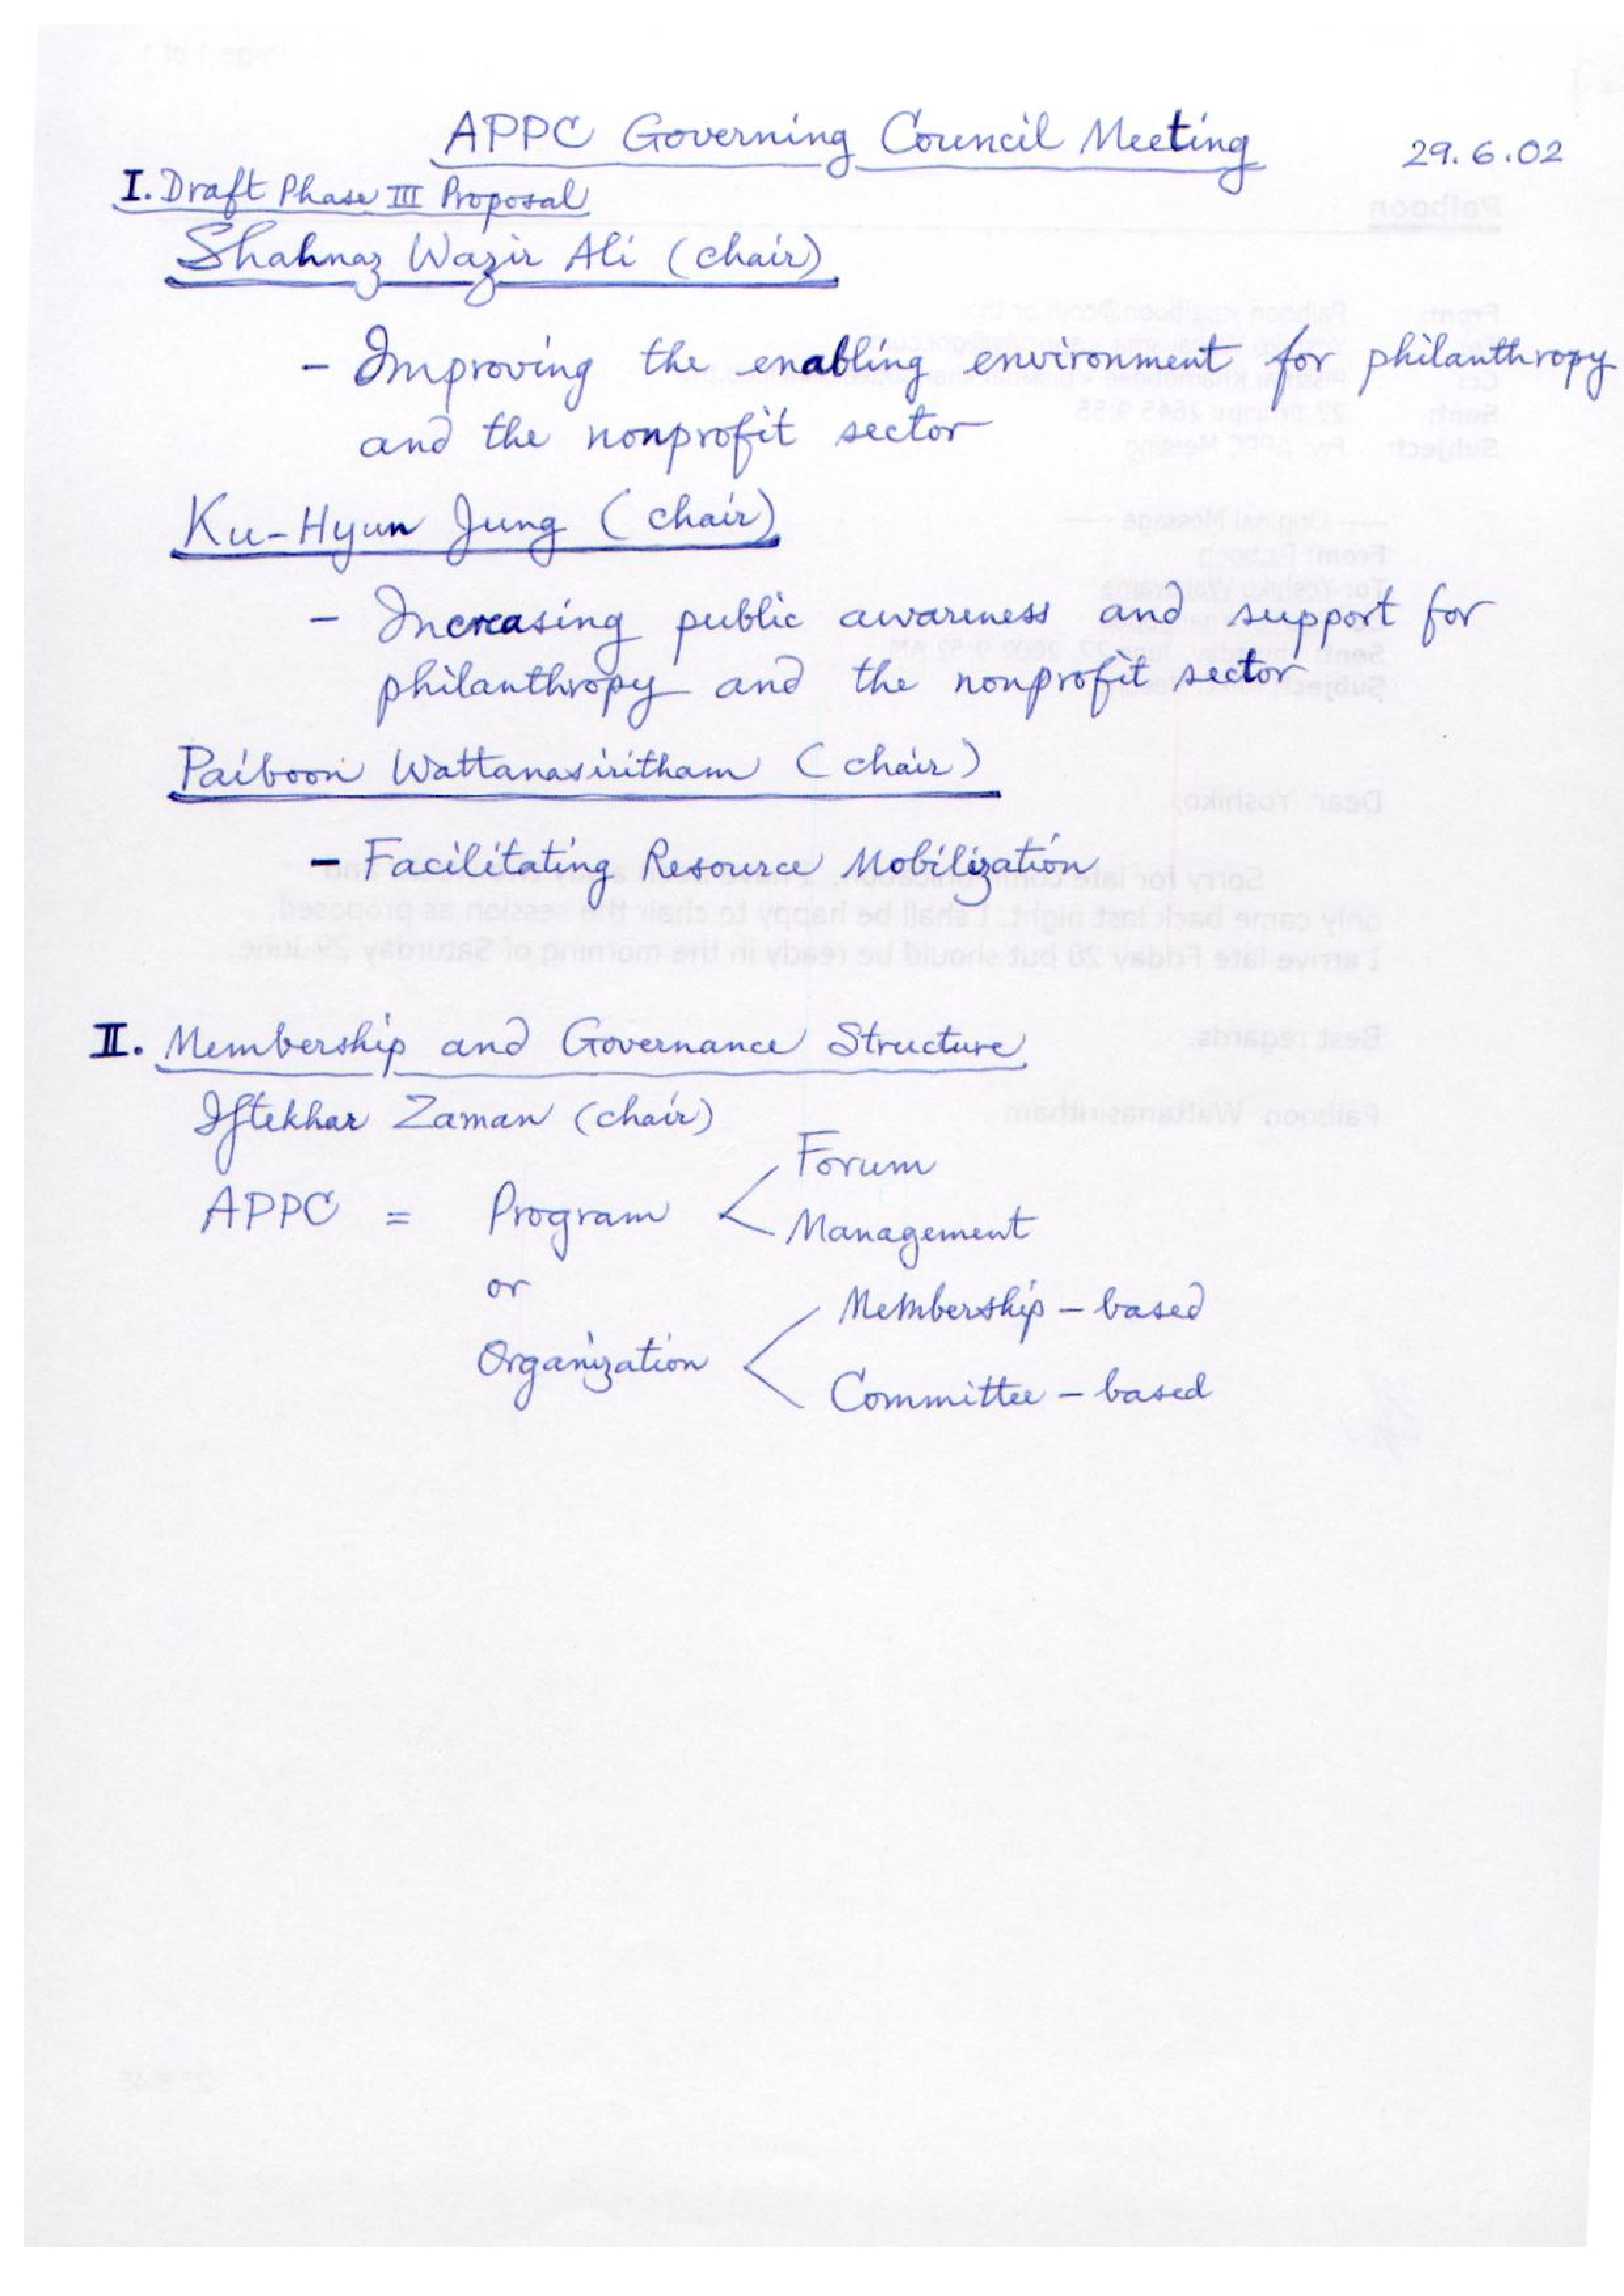 APPC Governing Council Meeting
29.6.02
I. Draft Phase III Proposal
Shahnaz Wazir Ali (chair)
- Improving the enabling environment for philanthropy
and the nonprofit sector
Ku-Hyun Jung (chair)
- Increasing public awareness and support for
philanthropy and the nonprofit sector
Paiboon Wattanasiritham (chair)
- Facilitating Resource Mobilization
II. Membership and Governance Structure
Iftekhar Zaman (chair)
Forum
APPC = Program <
Management
or
Membership - based
Organization <
Committee - based